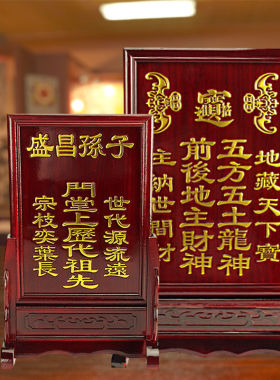 子孫昌盛
世代源流遠
門堂上歷代祖先
宗枝奕葉長
招財進寶
地藏天下寶
五方五土龍神
前後地主財神
主納世間財